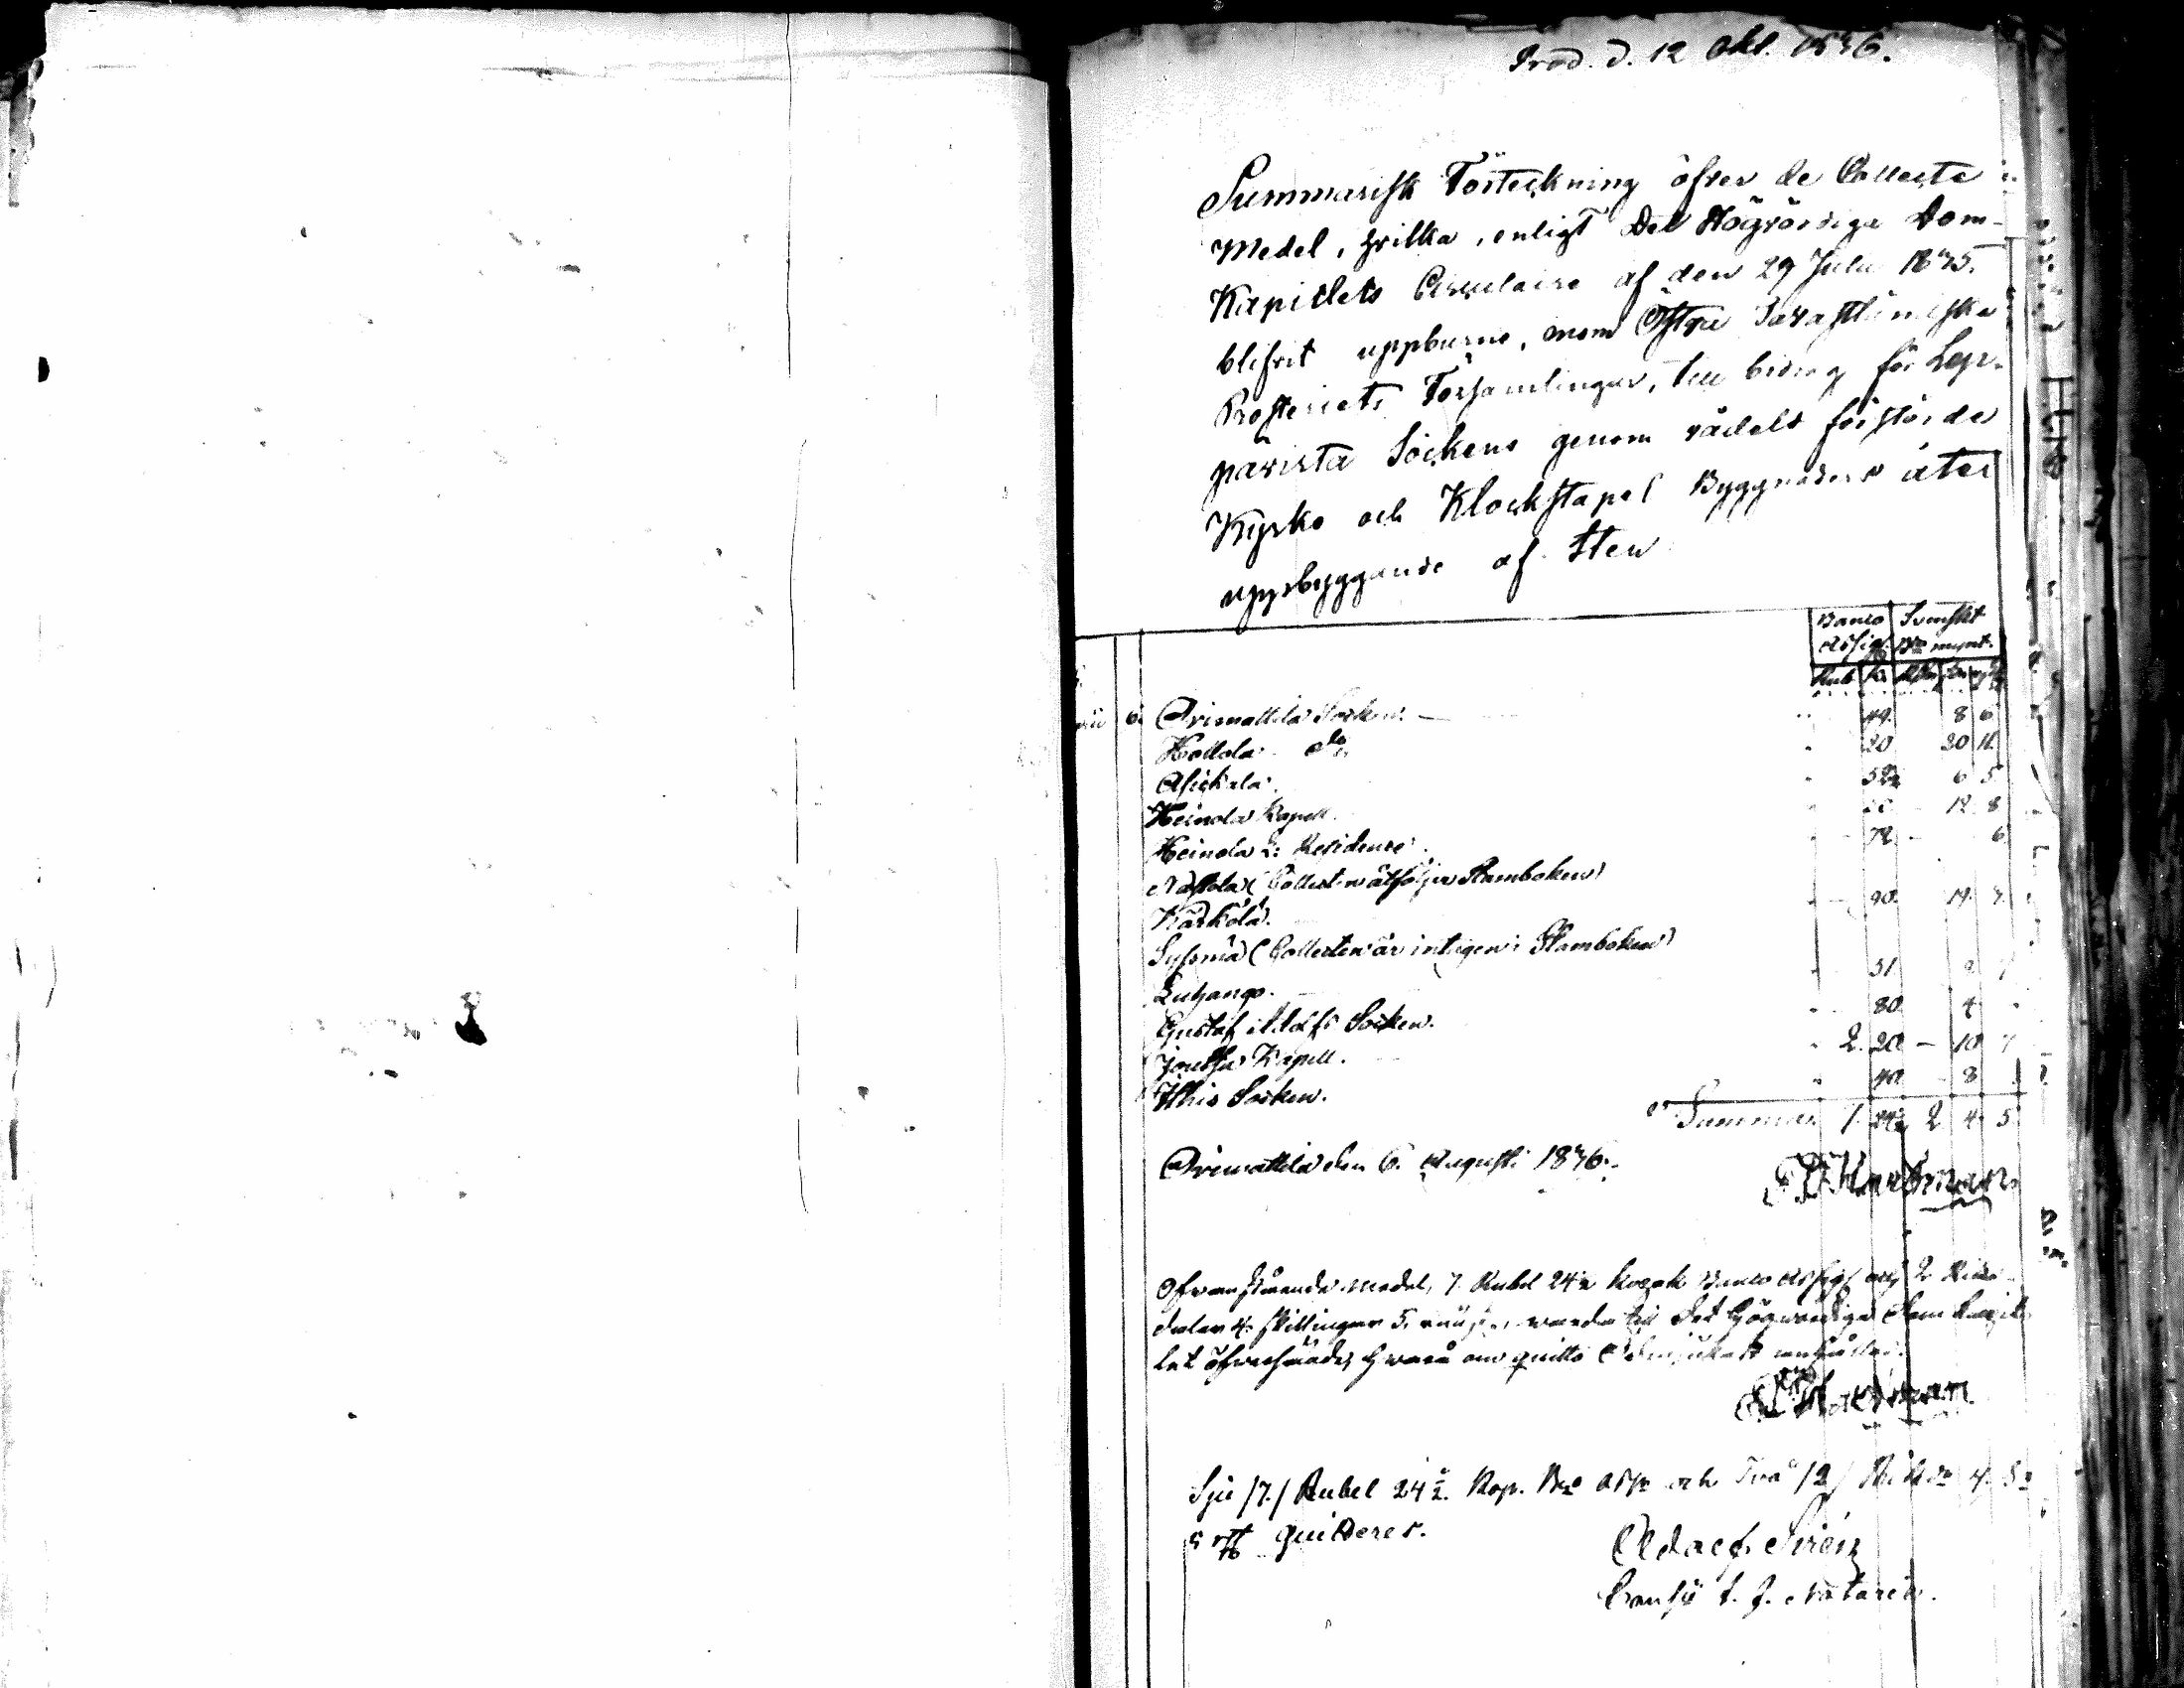 Prod. d. 12 Okt. 1836.
Summarisk Förteckning öfver de Collecte
Medel, hvilka, enligt Det Högvördiga Dom-
Kapitlets Circulaire af den 29 Julii 1835.
blifvit uppburne, inom Östra Tavastländska
Prosteriets Församlingar, till bidrag för Lep-
pävirta Sockens genom vådeld förstörda
Kyrko och Klockstapel Byggnaders åter
uppbyggande af Sten
Banco Assign. Svenskt Bco mynt.
Rub K. RDr
Orimattila Socken. 49. 8 6
Hollola do 20 20 11.
Asickala. 52½ 6 5
Heinola Kapell. 12. 8
Heinola Residence. 72. 6
Nastola (Collecten åtföljer Stamboken)
Kärkölä. 90. 19. 7.
Sysmä (Collecten är intagen i Stamboken)
Luhango. 51
Gustaf Adolfs Socken. 80. 4
Joutsa Kapell. 2. 20 10 7
Ithis Socken. 40 8
Summa 7. 24½ 2 4. 5
Orimattila den 6. Augusti 1836.
Ofvanstående medel, 7. Rubel 24½ kopek Banco Assign. och 2 Riks-
daler 4. skillingar 5. warda till Det Högwördiga Dom Kapit-
let öfversände, hwarå om quitto
Sju /7./ Rubel 24½. Kop. Bco och Två /2/ 4. s.
5 quitteres.
Adolf Sirén
t. f. Notarie.